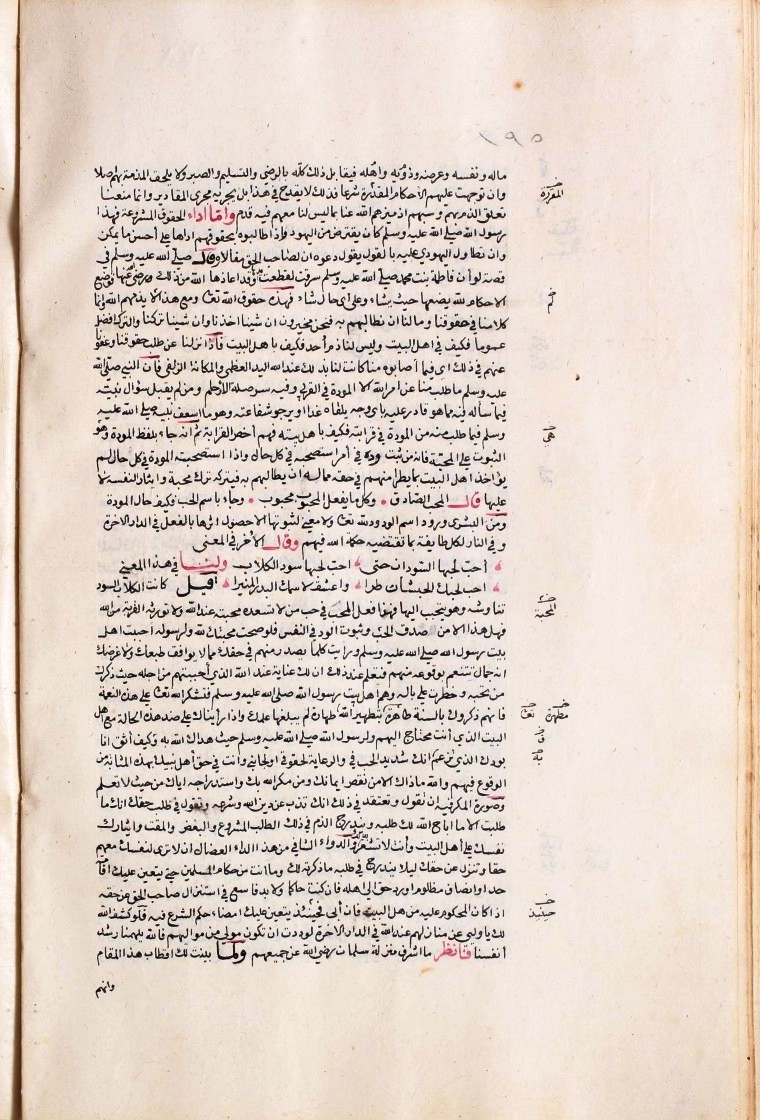 ١٩٥
ماله ونفسه وعرضه وذويه واهله فيقابل ذلك كله بالرضى والتسليم والصبر ولا يلحق المذمة بهم اصلا
وان توجهت عليهم الاحكام المقدرة شرعا فذلك لا يقدح في هذا بل يجريه مجرى المقادير وانما منعنا
تعلق الذم بهم وسبهم اذ ميزهم الله عنا بما ليس لنا معهم فيه قدم واما اداء الحقوق المشروعة فهذا
رسول الله صلى الله عليه وسلم كان يقترض من اليهود واذا طالبوه بحقوقهم اداها على أحسن ما يمكن
وان تطاول اليهودي عليه بالقول يقول دعوه ان لصاحب الحق مقالا وقال صلى الله عليه وسلم في
قصة لو أن فاطمة بنت محمد صلى الله عليه وسلم سرقت لقطعت وقد اعاذها الله من ذلك ورضي عنها فوضع
الاحكام لله يضعها حيث يشاء وعلى اي حال شاء فهذه حقوق الله تعا ومع هذا لا يذمهم الله انما
كلامنا في حقوقنا وما لنا ان نطالبهم به فنحن مخيرون ان شينا اخذنا وان شينا تركنا والترك افضل
عموما فكيف في اهل البيت وليس لنا ذم أحد فكيف باهل البيت فاذا نزلنا عن طلب حقوقنا وعفونا
عنهم في ذلك اى فيما أصابوه منا كانت لنا بذلك عند الله اليد العظمى والمكانة الزلفى فان النبي صلى الله
عليه وسلم ما طلب منا عن امر الله الا المودة في القربى وفيه سر صلة الارحام ومن لم يقبل سؤال نبيه
فيما سأله فيه مما هو قادر عليه باى وجه يلقاه غدا او يرجو شفاعته وهو ما اسعف نبيه صلى الله عليه
وسلم فيما طلب منه من المودة في قرابته فكيف باهل بيته فهم أخص القرابة ثم انه جاء بلفظ المودة وهو
الثبوت على المحبة فانه من ثبت وده في أمر استصحبه في كل حال واذا استصحبته المودة في كل حال لم
يؤاخذ اهل البيت بما يطرأ منهم في حقه مما له ان يطالبهم به فيتركه ترك محبة وايثارا لنفسه لا
عليها قال المحب الصادق • وكل ما يفعل المحبوب محبوب • وجاء باسم الحب فكيف حال المودة
ومن البشرى ورود اسم الودود لله تعا ولا معنى لثبوتها الا حصول اثرها بالفعل في الدار الاخرة
وفي النار لكل طايفة بما تقتضيه حكمة الله فيهم وقال الآخر في المعنى
أحب لحبها السودان حتى احب لحبها سود الكلاب ولنا في هذا المعنى
احب لحبك الحبشان طرا واعشق لاسمك البدر المنيرا قيل كانت الكلاب السود
تناوشه وهو يتحبب اليها فهذا فعل المحب في حب من لا تسعده محبته عند الله ولا تورثه القربة من الله
فهل هذا الا من صدق الحب وثبوت الود في النفس فلو صحت محبتك لله ولرسوله احببت اهل
بيت رسول الله صلى الله عليه وسلم ورايت كلما يصدر منهم في حقك مما لا يوافق طبعك ولا غرضك
انه جمال تتنعم بوقوعه منهم فتعلم عند ذلك ان لك عناية عند الله الذي احببتهم من اجله حيث ذكرك
من يحبه وخطرت على باله وهم اهل بيت رسول الله صلى الله عليه وسلم فتشكر الله تعا على هذه النعمة
فانهم ذكروك بالسنة طاهرة بتطهير الله طهارة لم يبلغها علمك واذا رأيناك على ضد هذه الحالة مع اهل
البيت الذي أنت محتاج اليهم ولرسول الله صلى الله عليه وسلم حيث هداك الله به فكيف أثق انا
بودك الذي تزعم انك شديد الحب في والرعاية لحقوقي او لجانبي وانت في حق أهل نبيك بهذه المثابة من
الوقوع فيهم والله ما ذاك الا من نقص ايمانك ومن مكر الله بك واستدراجه اياك من حيث لا تعلم
وصورة المكر فيه ان تقول وتعتقد في ذلك انك تذب عن دين الله وشرعه وتقول في طلب حقك انك ما
طلبت الا ما اباح الله لك طلبه ويندرج الذم في ذلك الطلب المشروع والبغض والمقت وايثارك
نفسك على أهل البيت وأنت لا تشعر بذلك والدواء الشافي من هذا الداء العضال ان لا ترى لنفسك معهم
حقا وتنزل عن حقك ليلا يندرج في طلبه ما ذكرته لك وما انت من حكام المسلمين حتى يتعين عليك اقامة
حد او انصاف مظلوم او رد حق الى اهله فان كنت حاكما ولا بد فاسع في استنزال صاحب الحق عن حقه
اذا كان المحكوم عليه من اهل البيت فان أبى فحينئذ يتعين عليك امضاء حكم الشرع فيه فلو كشف الله
لك يا وليي عن منازلهم عند الله في الدار الاخرة لوددت ان تكون مولى من مواليهم فالله يلهمنا رشد
أنفسنا فانظر ما اشرف منزلة سلمان رضي الله عن جميعهم ولما بينت لك اقطاب هذا المقام
وانهم
المقررة
لم
هي
المحبة
مطهرة
تعا
به
حينيذ